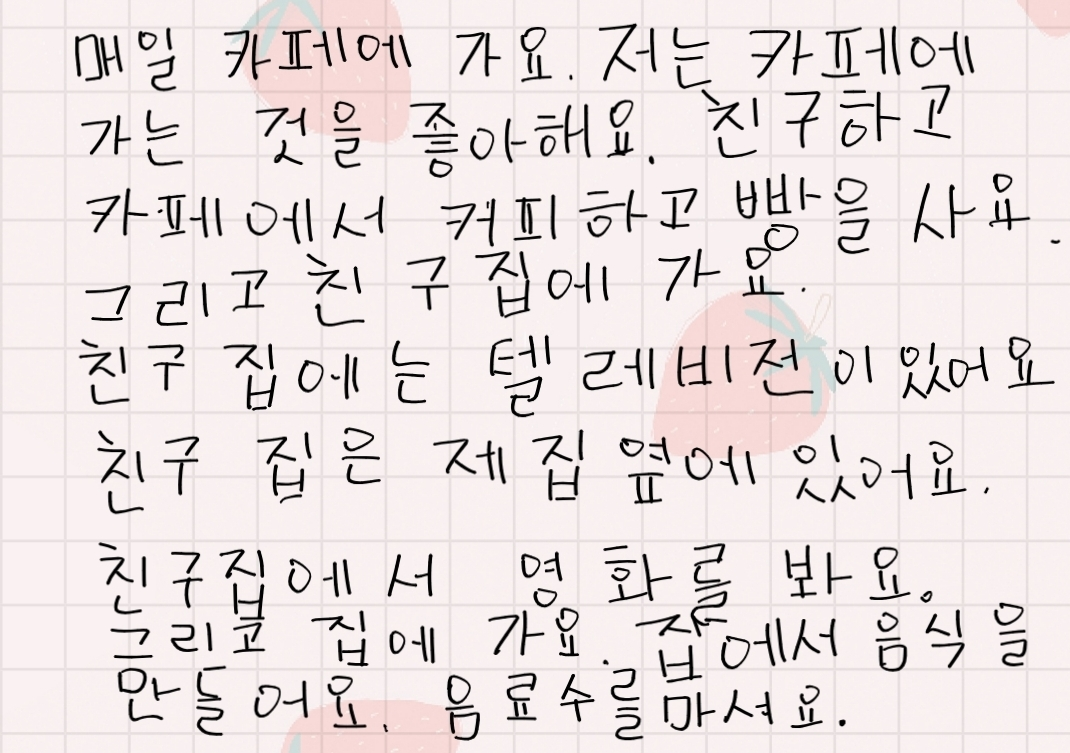 매일 카페에 가요. 저는 카페에
가는 것을 좋아해요. 친구하고
카페에서 커피하고 빵을 사요.
그리고 친구 집에 가요.
친구 집에는 텔레비전이 있어요
친구 집은 제 집 옆에 있어요.
친구집에서 영화를 봐요.
그리고 집에 가요. 집에서 음식을
만들어요. 음료수를 마셔요.